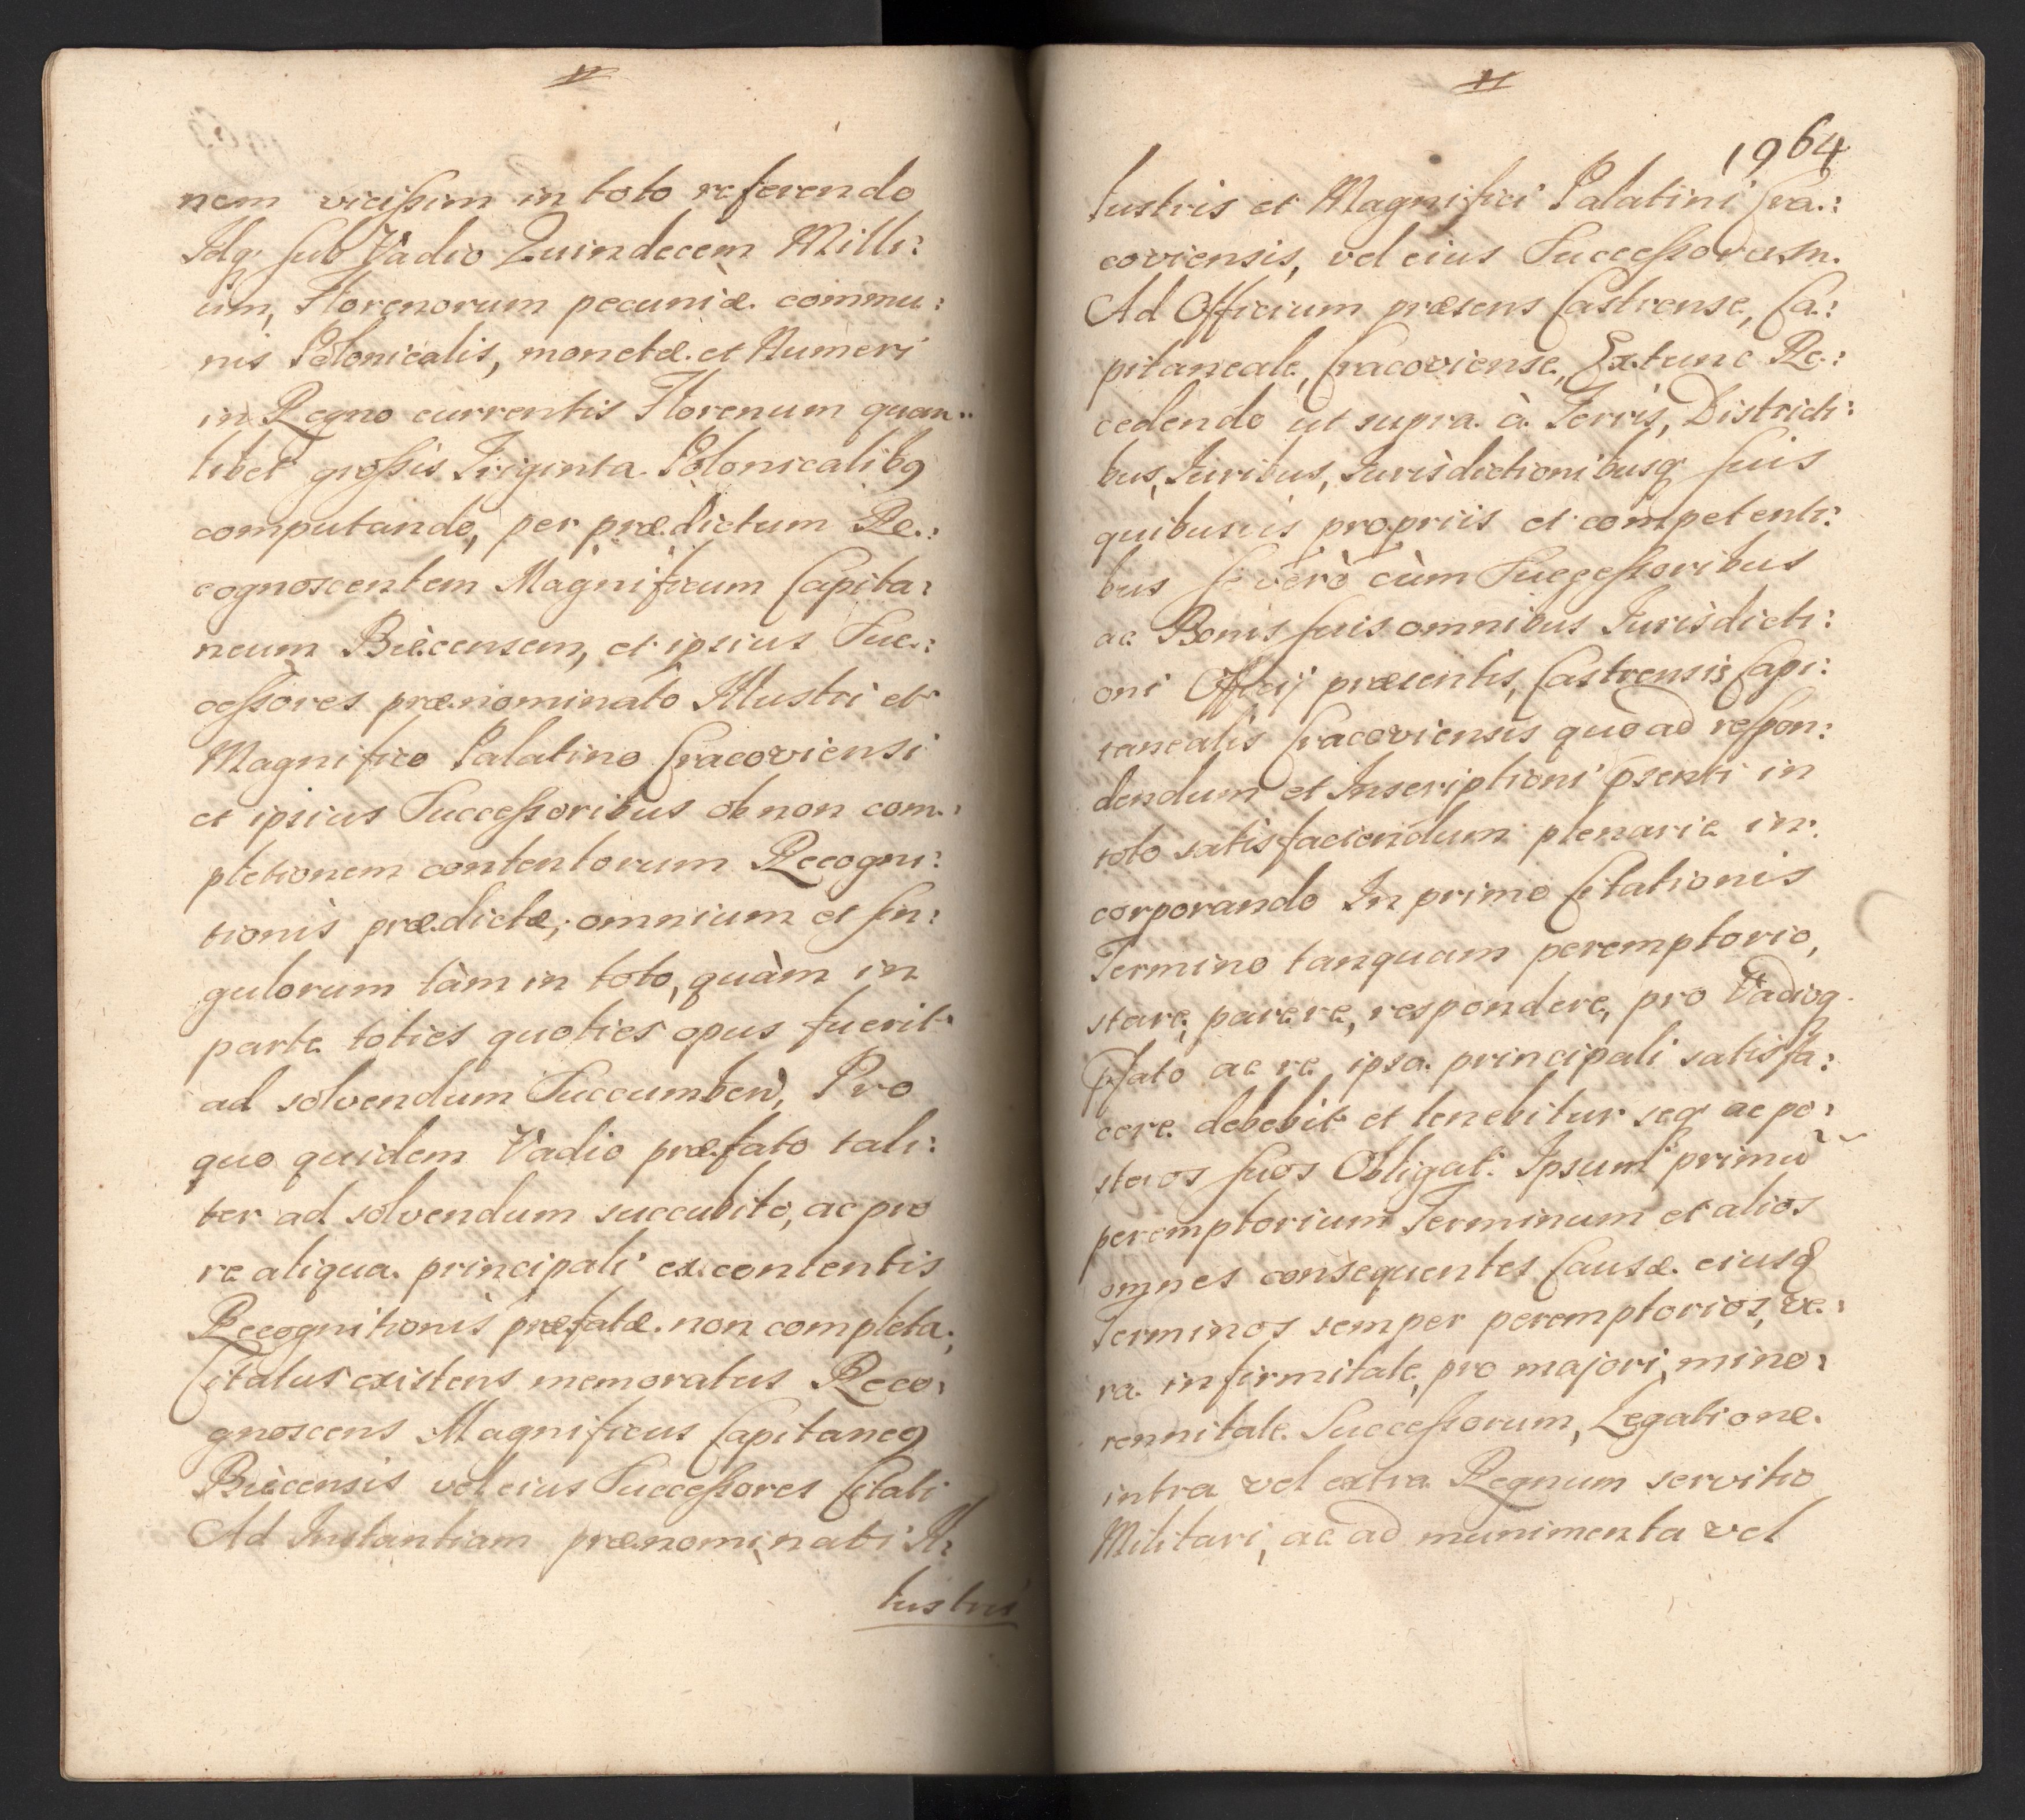 nem vicissim in toto referendo
Idq sub Vadio Quindecem Milli:
um, Florenorum pecuniæ commu:
nis Polonicalis, monetæ et Numeri
in Regno currentis Florenum quem
libet grossis Triginta Polonicalibq
computando, per prædictum Re:
cognoscentem Magnificum Capita:
neum Biècensem, et ipsius Suc:
cessores prænominato Illustri et
Magnifico Palatino Cracoviensi
et ipsius Successoribus ob non com:
pletionem contentorum Recogni:
tionis prædictæ, omnium et sin:
gulorum tàm in toto, quàm in
parte toties quoties opus fuerit
ad solvendum Succumben, Pro
quo quidem Vadio præfato tali:
ter ad solvendum succubito, ac pro
re aliqua principali ex contentis
Recognitionis præfatæ non completa,
Citatus existens memoratus Reco:
gnoscens Magnificus Capitaneq
Biècensis vel eius Successores Citati
Ad Instantiam prænominati Il:
lustris
1964
lustris et Magnifici Palatini Cra:
coviensis, vel eius Successorum.
Ad Officium præsens Castrense, Ca:
pitaneale, Cracoviense, Extunc Re:
cedendo ut supra à Terris, Districti:
bus, Iuribus, Iurisdictionibusq suis
quibusvis propriis et competenti:
bus se verò cùm Successoribus
ac Bonis suis omnibus Iurisdicti:
oni Officij præsentis, Castrensis Capi:
tanealis Cracoviensis quo ad respon:
dendum et Inscriptioni psenti in
toto satisfaciendum plenarie in:
corporando In primo Citationis
Termino tanquam peremptorio,
stare, parere, respondere, pro Vadioq
pfato ac re ipsa principali satisfa:
cere debebit et tenebitur seq ac po:
steros suos Obligat: Ipsum primū
peremptorium Terminum et alios
omnes consequentes Causæ eiusq
Terminos semper peremptorios, ve:
ra infirmitate, pro majori, mino:
rennitate Successorum, Legatione
intra vel extra Regnum servitio
Militari, ac ad munimenta vel